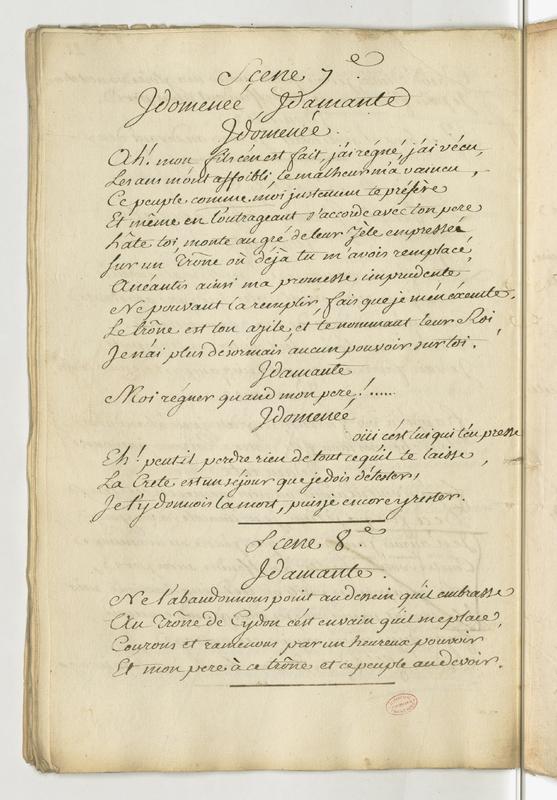 Scene 7.e
Idomeneé Idamante
Idomenée.
Ah! mon fils c'en est fait, j'ai régné, j'ai vécu,
Les ans m'ont affoibli, le malheur m'a vaincu,
Ce peuple comme moi justement te préfère
Et même en l'outrageant s'accorde avec ton pere
hâte toi, monte au gré de leur Zèle empressé
sur un Trône où déjà tu m'avois remplacé,
Anéantis ainsi ma promesse imprudente
Ne pouvant la remplir, fais que je m'en éxemte.
Le trône est ton azile, et te nommant leur Roi,
Je n'ai plus désormais aucun pouvoir sur toi.
Idamante
Moi régner quand mon pere! .....
Idomeneé
oüi c'est lui qui t'en presse
Eh! peut il perdre rien de tout ce qu'il te laisse,
La Crete est un séjour que je dois détester,
Je t'y donnois la mort, puis je encore y rester.
Scene 8.e
Idamante.
Ne l'abandonnons point au dessein qu'il embrasse
Au Trône de Cydon c'est en vain qu'il me place,
Courons et ramenons par un heureux pouvoir
Et mon pere à ce trône et ce peuple au devoir.